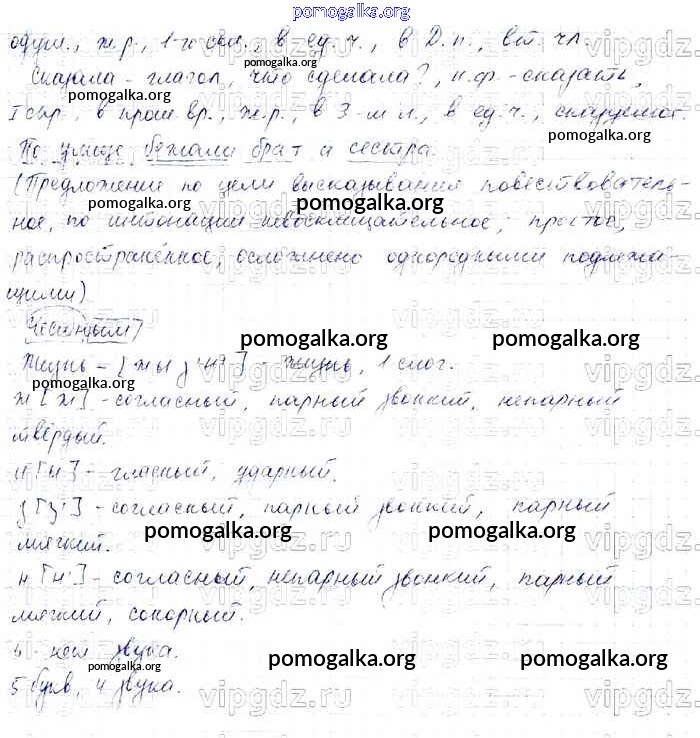 pomogalka.org
одуш., ж.р., 1-е скл., в ед.ч., в Д.п., вт. чл.
Сказала - глагол, что сделала?, н.ф. - сказать,
pomogalka.org pomogalka.org
I спр., в прош вр., ж.р., в 3-м л., в ед.ч., сказуемое.
pomogalka.org
По улице бежали брат и сестра
(Предложение по цели высказывания повествователь-
pomogalka.org pomogalka.org
ное, по интонации невосклицательное, простое,
распространённое, осложнено однородными подлежа-
щими)
Честным
pomogalka.org pomogalka.org
Жизнь - [жыз'н'] - жизнь, 1 слог.
pomogalka.org
ж [ж] - согласный, парный звонкий, непарный
твёрдый.
и [ы] - гласный, ударный.
з [з'] - согласный, парный звонкий, парный
pomogalka.org pomogalka.org
мягкий.
н [н'] - согласный, непарный звонкий, парный
мягкий, сонорный.
ь - нет звука.
pomogalka.org pomogalka.org pomogalka.org
5 букв, 4 звука.
vipgdz.ru